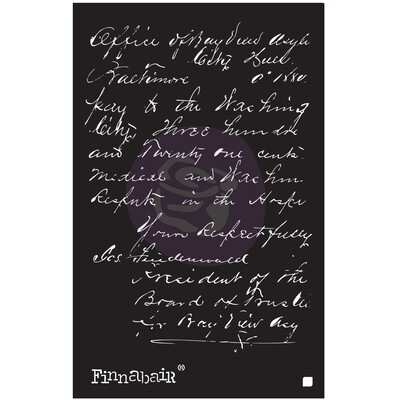 Office of Bay View Asyl
City Hall
Baltimore 1880.
pay to the Washing
City, Three hundre
and Twenty one cents
Medical and Washin
in the Hospe
Yours Respectfully
Jos Friedenwald
President of the
Board of Truste
for Bay View Asy
Finnabair®